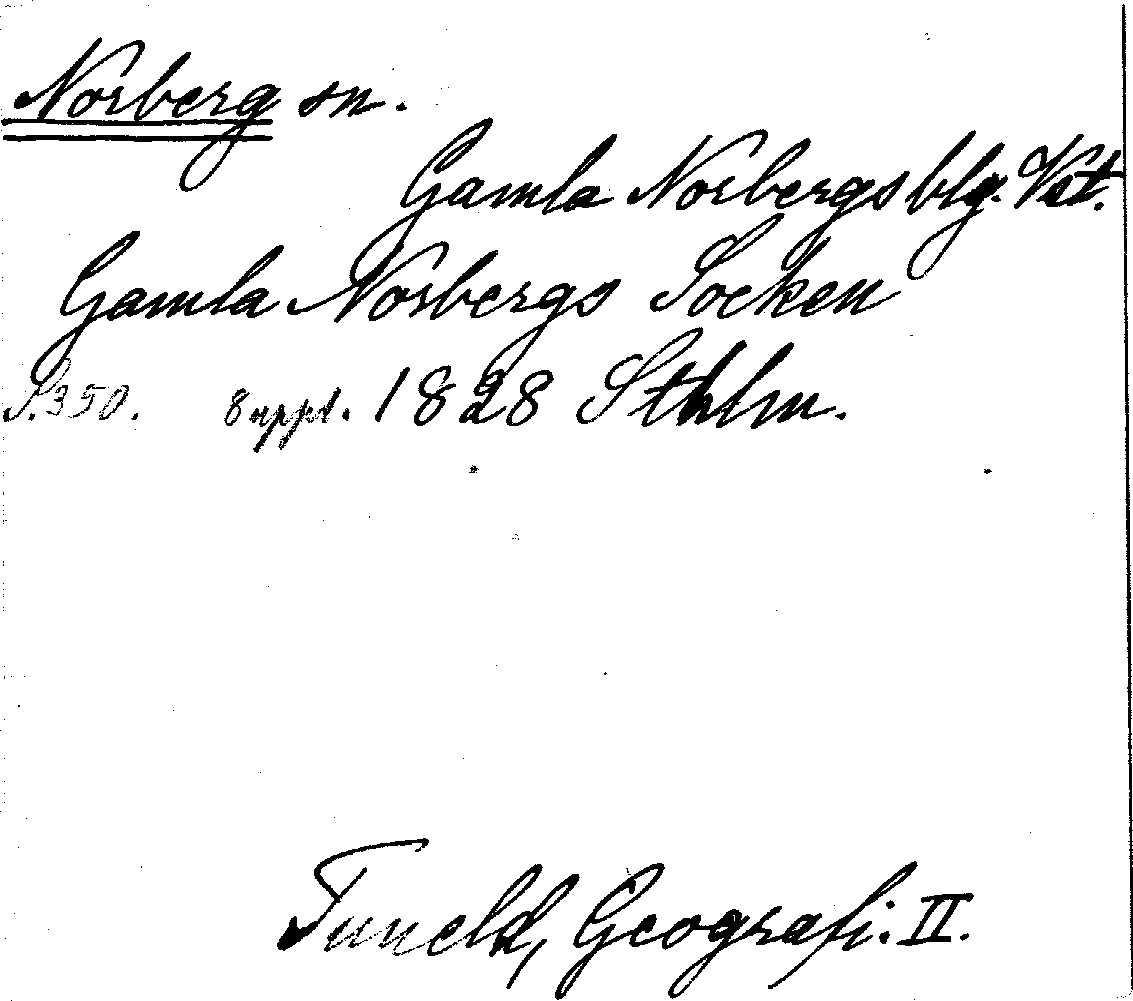 Norberg sn.
Gamla Norbergs blg. Vst.
Gamla Norbergs Socken
S. 350. 8 uppl. 1828 Sthlm.
Tuneld, Geografi. II.